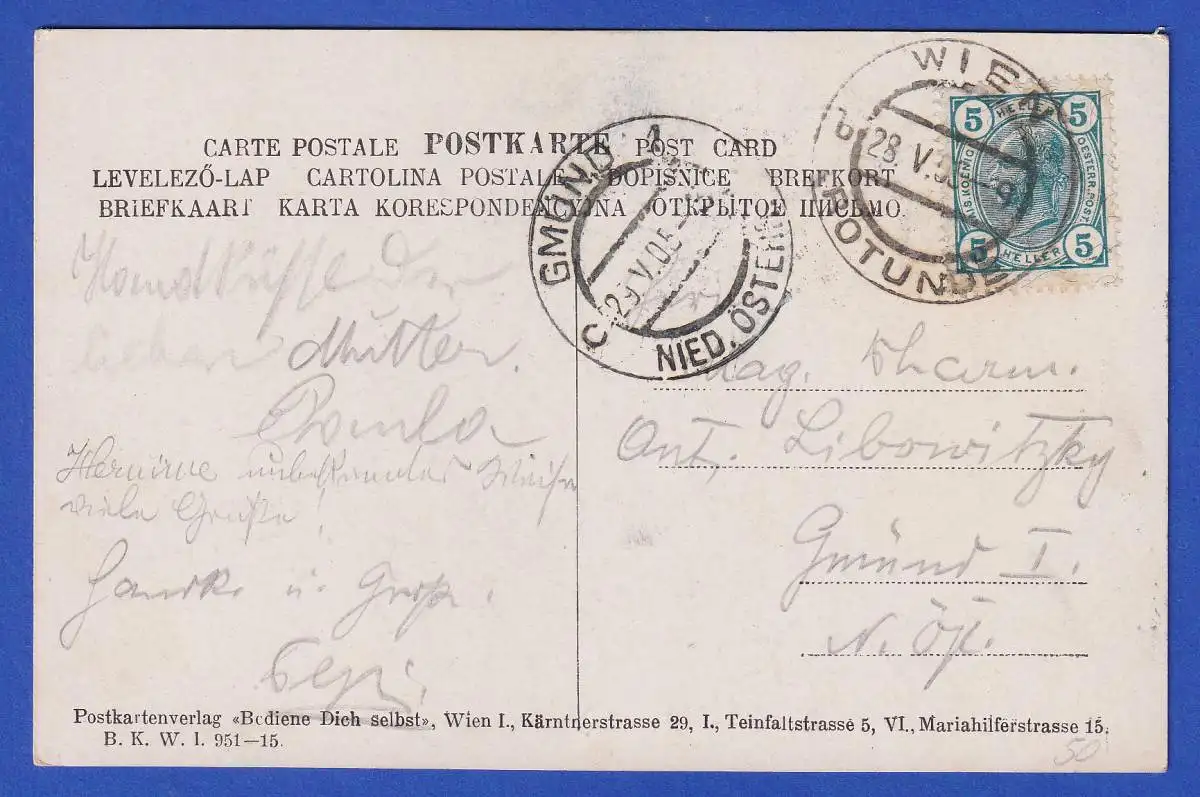 CARTE POSTALE POSTKARTE POST CARD
LEVELEZŐ-LAP CARTOLINA POSTALE DOPISNICE BREFKORT
BRIEFKAART KARTA KORESPONDENCYJNA ОТКРЫТОЕ ПИСЬМО.
WIEN
b 28. V. 05
ROTUNDE
5 HELLER 5
OESTERR. POST.
5 HELLER 5
GMÜND 1
29. V. 05
C NIED. ÖSTERR.
Handküsse der
lieben Mutter.
Hermine unbekannter
viele Grüße!
u. Gruß.
Mag. Pharm.
Ant. Libowitzky
Gmünd I.
N. Öst.
Postkartenverlag «Bediene Dich selbst», Wien I., Kärntnerstrasse 29, I., Teinfaltstrasse 5, VI., Mariahilferstrasse 15.
B. K. W. I. 951—15.
50